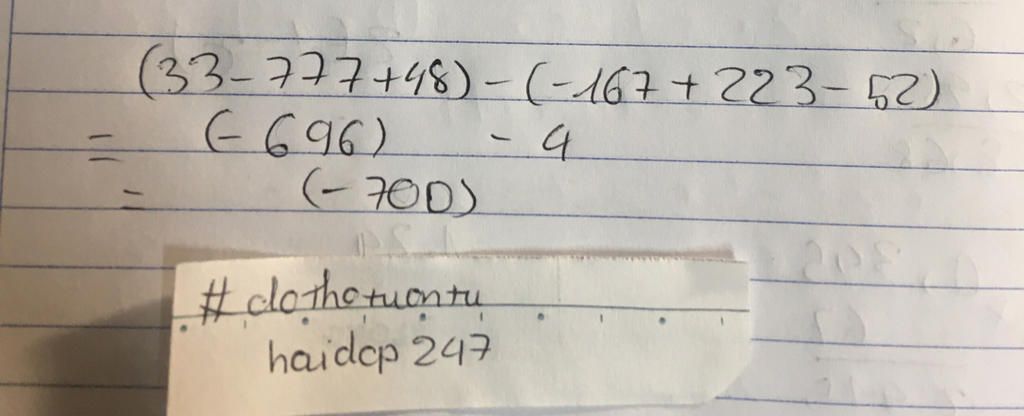 (33-777+48)-(-167+223-52)
= (-696) - 4
= (-700)
# dothotuontu
haidcp 247